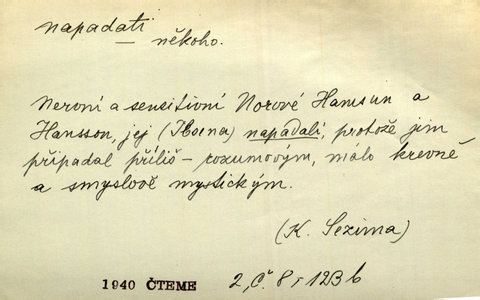 napadati
— někoho.
Nervní a sensitivní Norové Hamsun a
Hansson, jej (Ibsena) napadali, protože jim
připadal příliš – rozumovým, málo krevně
a smyslově mystickým.
(K. Sezima)
1940 ČTEME 2, č. 8, 123 b